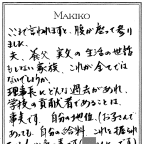 MAKIKO
ここまで言われますと、腹が座って参り
ました。
夫、養父、実父の生活の世話
もしない家族、これが全てでは
ないでしょうか。
理事長にどんな過去があれ、
学校の貢献者であることは、
事実です。自分の地位、(お子さんで
あっても、自分の給料、これを振